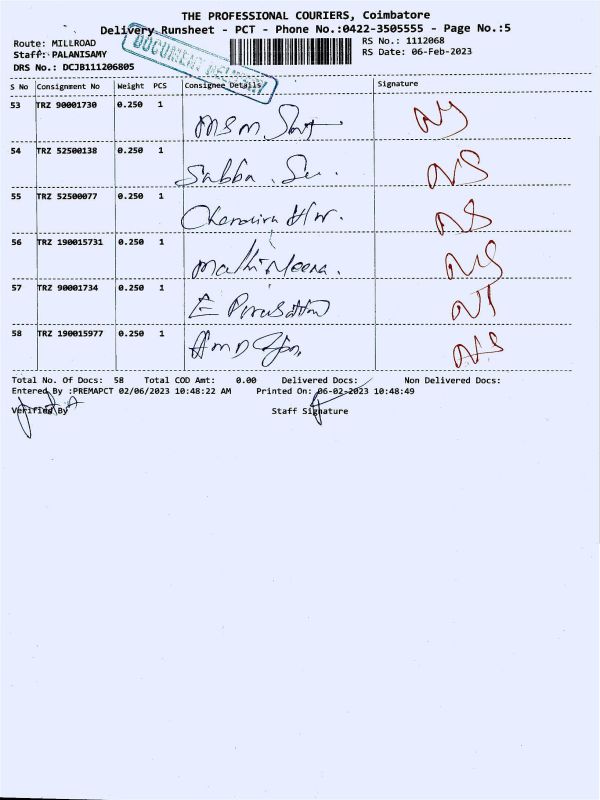 THE PROFESSIONAL COURIERS, Coimbatore
Delivery Runsheet - PCT - Phone No.:0422-3505555 - Page No.:5
Route: MILLROAD
RS No.: 1112068
Staff: PALANISAMY
RS Date: 06-Feb-2023
DRS No.: DCJB111206805
DOCUMENT DELIVERY
S No Consignment No Weight PCS Consignee Details Signature
53 TRZ 90001730 0.250 1 MSM
54 TRZ 52500138 0.250 1 Sabba
55 TRZ 52500077 0.250 1
56 TRZ 190015731 0.250 1 Mathi Meena.
57 TRZ 90001734 0.250 1 E
58 TRZ 190015977 0.250 1
Total No. Of Docs: 58 Total COD Amt: 0.00 Delivered Docs: Non Delivered Docs:
Entered By :PREMAPCT 02/06/2023 10:48:22 AM Printed On: 06-02-2023 10:48:49
Verified By Staff Signature